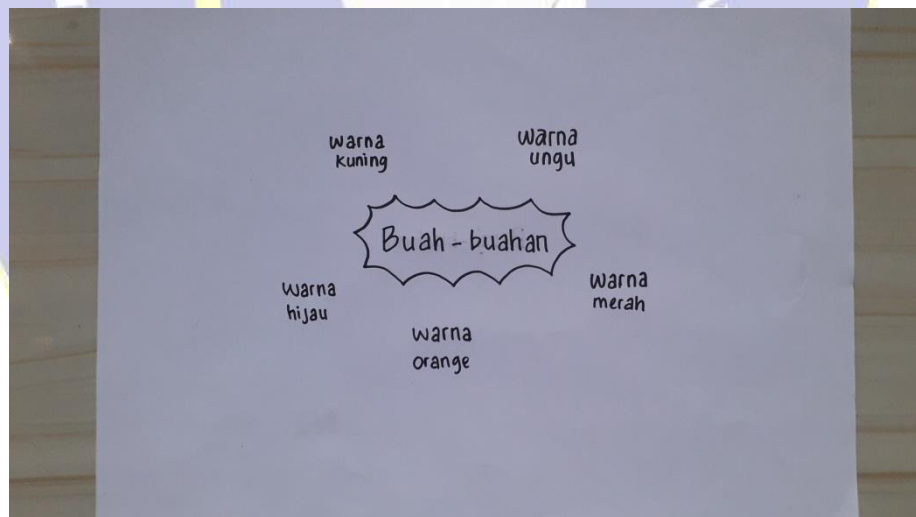 Warna
kuning
Warna
ungu
Buah - buahan
Warna
hijau
Warna
merah
Warna
orange